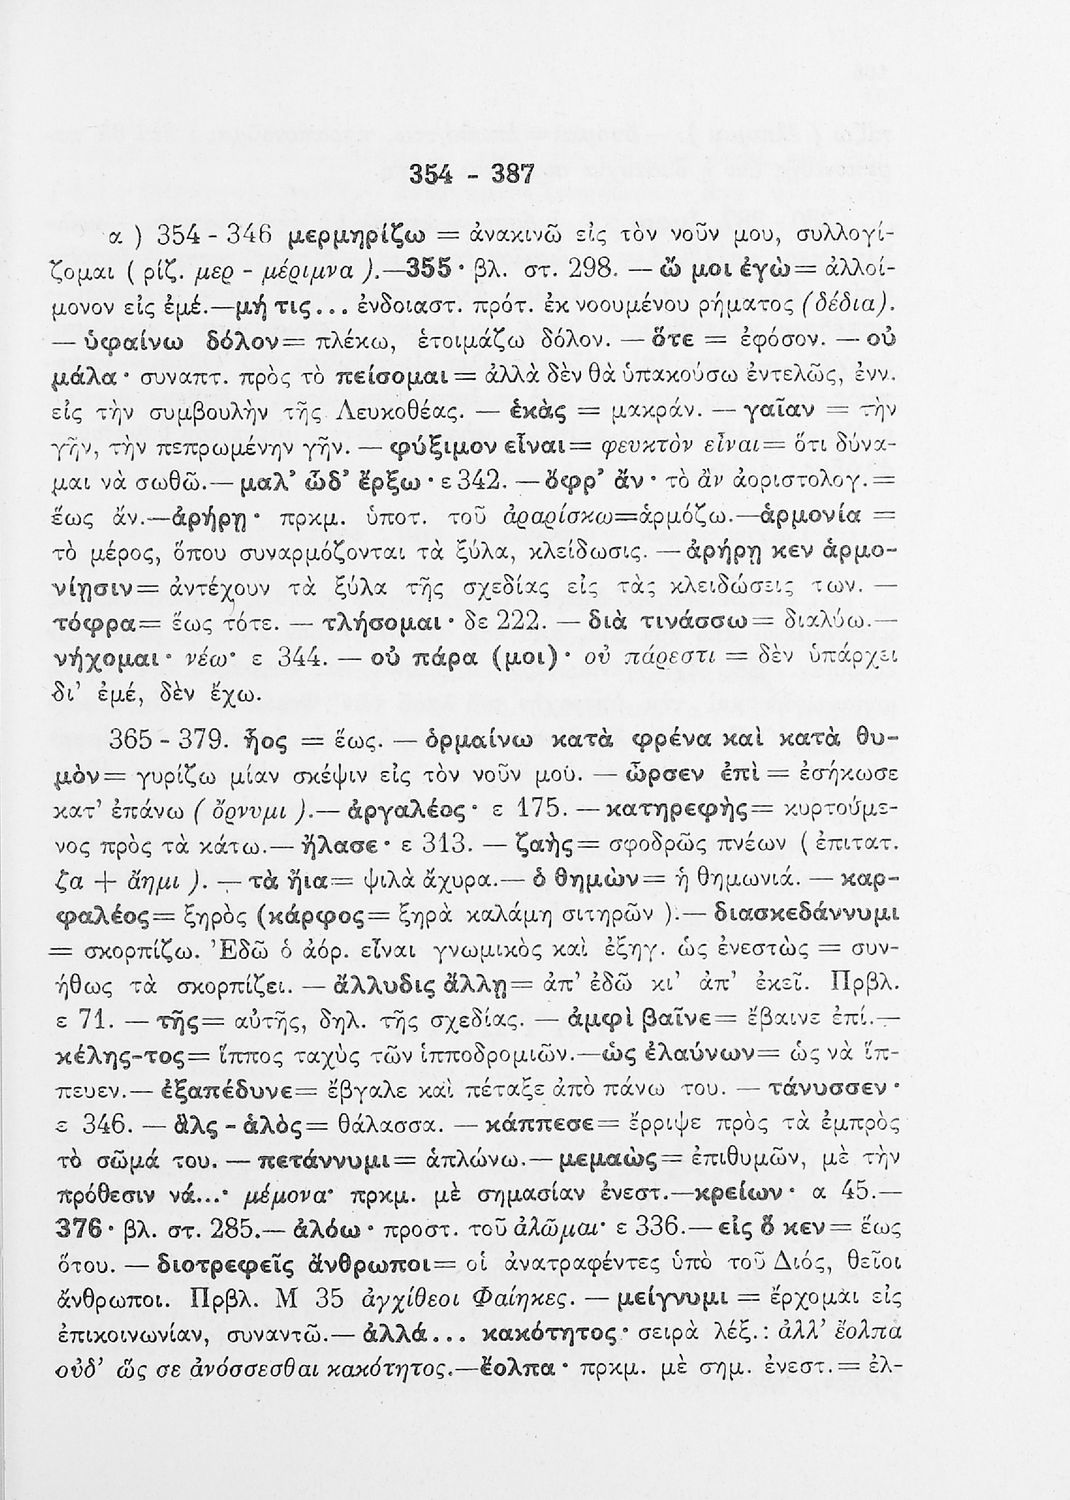 354 - 387
α ) 354 - 346 μερμηρίζω = ἀνακινῶ εἰς τὸν νοῦν μου, συλλογί-
ζομαι ( ρίζ. μερ - μέριμνα ).—355 · βλ. στ. 298. — ὤ μοι ἐγὼ = ἀλλοί-
μονον εἰς ἐμέ.—μή τις... ἐνδοιαστ. πρότ. ἐκ νοουμένου ρήματος (δέδια).
— ὑφαίνω δόλον = πλέκω, ἑτοιμάζω δόλον. — ὅτε = ἐφόσον. — οὐ
μάλα · συναπτ. πρὸς τὸ πείσομαι = ἀλλὰ δὲν θὰ ὑπακούσω ἐντελῶς, ἐνν.
εἰς τὴν συμβουλὴν τῆς Λευκοθέας. — ἑκὰς = μακράν. — γαῖαν = τὴν
γῆν, τὴν πεπρωμένην γῆν. — φύξιμον εἶναι = φευκτὸν εἶναι = ὅτι δύνα-
μαι νὰ σωθῶ.— μαλ’ ὧδ’ ἔρξω · ε 342. — ὄφρ’ ἄν · τὸ ἂν ἀοριστολογ. =
ἕως ἄν.—ἀρήρῃ · πρκμ. ὑποτ. τοῦ ἀραρίσκω=ἁρμόζω.—ἁρμονία =
τὸ μέρος, ὅπου συναρμόζονται τὰ ξύλα, κλείδωσις. — ἀρήρῃ κεν ἁρμο-
νίῃσιν = ἀντέχουν τὰ ξύλα τῆς σχεδίας εἰς τὰς κλειδώσεις των. —
τόφρα = ἕως τότε. — τλήσομαι · δε 222. — διὰ τινάσσω = διαλύω.—
νήχομαι · νέω · ε 344. — οὐ πάρα (μοι) · οὐ πάρεστι = δὲν ὑπάρχει
δι’ ἐμέ, δὲν ἔχω.
365 - 379. ἧος = ἕως. — ὁρμαίνω κατὰ φρένα καὶ κατὰ θυ-
μὸν = γυρίζω μίαν σκέψιν εἰς τὸν νοῦν μού. — ὦρσεν ἐπὶ = ἐσήκωσε
κατ’ ἐπάνω ( ὄρνυμι ).— ἀργαλέος · ε 175. — κατηρεφὴς = κυρτούμε-
νος πρὸς τὰ κάτω.— ἤλασε · ε 313. — ζαὴς = σφοδρῶς πνέων ( ἐπιτατ.
ζα + ἄημι ). — τὰ ἤια = ψιλὰ ἄχυρα.— ὁ θημὼν = ἡ θημωνιά. — καρ-
φαλέος = ξηρὸς (κάρφος = ξηρὰ καλάμη σιτηρῶν ).— διασκεδάννυμι
= σκορπίζω. Ἐδῶ ὁ ἀόρ. εἶναι γνωμικὸς καὶ ἐξηγ. ὡς ἐνεστὼς = συν-
ήθως τὰ σκορπίζει. — ἄλλυδις ἄλλῃ = ἀπ’ ἐδῶ κι’ ἀπ’ ἐκεῖ. Πρβλ.
ε 71. — τῆς = αὐτῆς, δηλ. τῆς σχεδίας. — ἀμφὶ βαῖνε = ἔβαινε ἐπί.—
κέλης-τος = ἵππος ταχὺς τῶν ἱπποδρομιῶν.—ὡς ἐλαύνων = ὡς νὰ ἵπ-
πευεν.— ἐξαπέδυνε = ἔβγαλε καὶ πέταξε ἀπὸ πάνω του. — τάνυσσεν ·
ε 346. — ἅλς - ἁλὸς = θάλασσα. — κάππεσε = ἔρριψε πρὸς τὰ ἐμπρὸς
τὸ σῶμά του. — πετάννυμι = ἁπλώνω.— μεμαὼς = ἐπιθυμῶν, μὲ τὴν
πρόθεσιν νά...· μέμονα · πρκμ. μὲ σημασίαν ἐνεστ.—κρείων · α 45.—
376 · βλ. στ. 285.— ἀλόω · προστ. τοῦ ἀλῶμαι · ε 336.— εἰς ὅ κεν = ἕως
ὅτου. — διοτρεφεῖς ἄνθρωποι = οἱ ἀνατραφέντες ὑπὸ τοῦ Διός, θεῖοι
ἄνθρωποι. Πρβλ. Μ 35 ἀγχίθεοι Φαίηκες. — μείγνυμι = ἔρχομαι εἰς
ἐπικοινωνίαν, συναντῶ.— ἀλλά... κακότητος · σειρὰ λέξ. : ἀλλ’ ἔολπα
οὐδ’ ὥς σε ἀνόσσεσθαι κακότητος.—ἔολπα · πρκμ. μὲ σημ. ἐνεστ. = ἐλ-